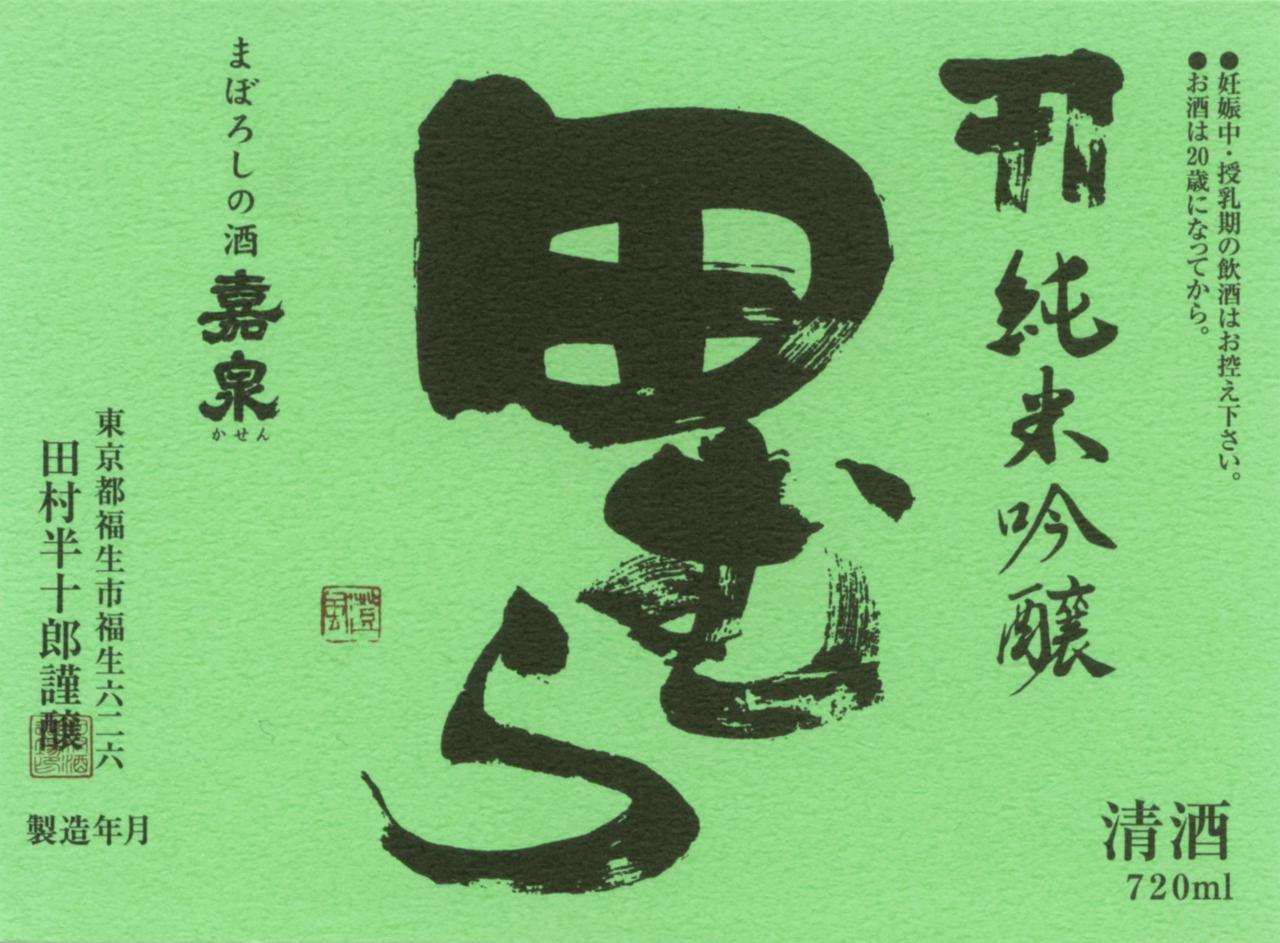 ●妊娠中・授乳期の飲酒はお控え下さい。
●お酒は20歳になってから。
純米吟醸
田むら
まぼろしの酒
嘉泉
かせん
東京都福生市福生六二六
田村半十郎謹醸
製造年月
清酒
720ml